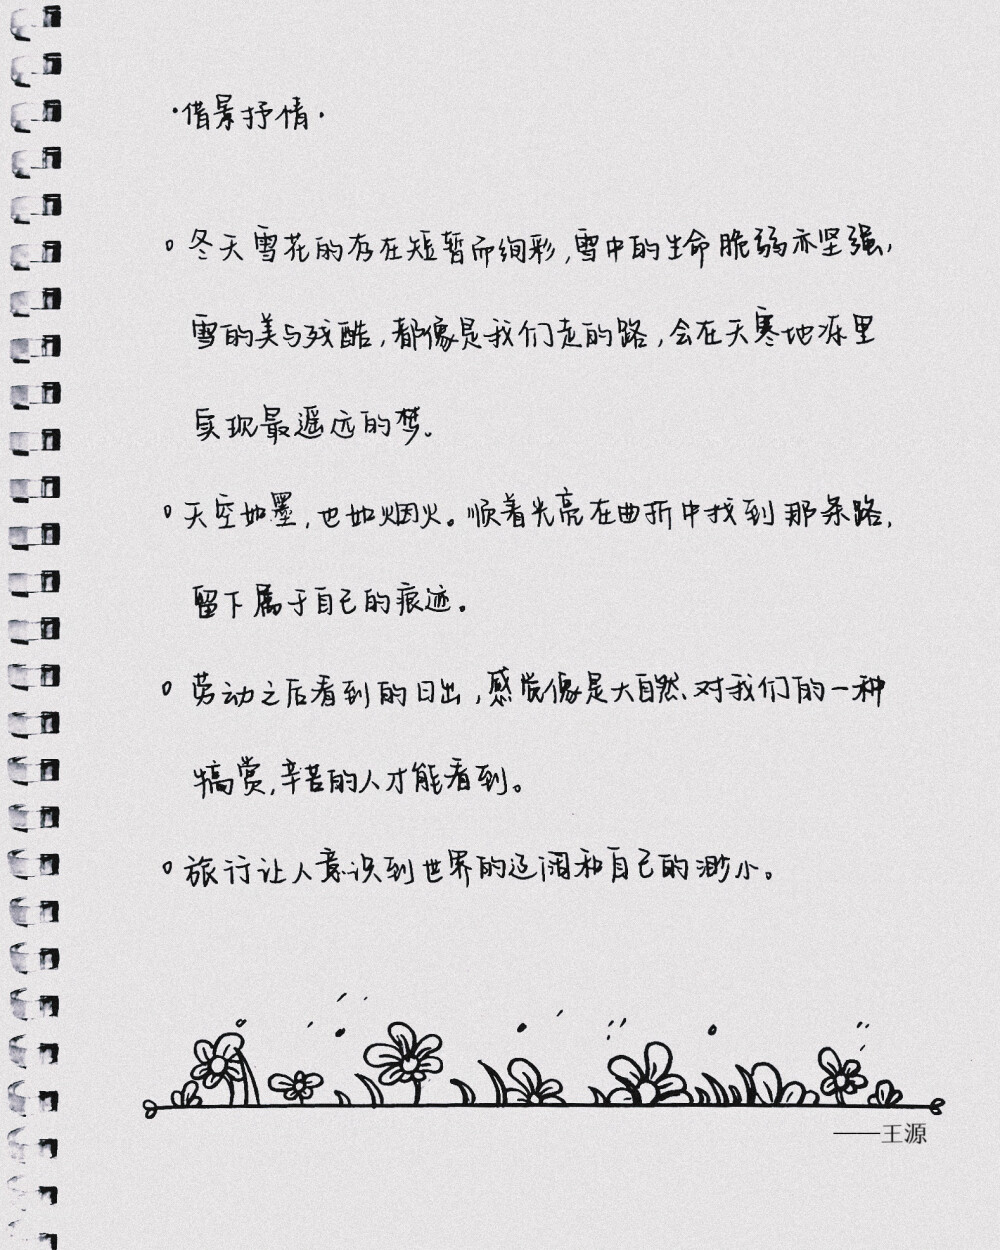 ·借景抒情·
。冬天雪花的存在短暂而绚彩,雪中的生命脆弱亦坚强,
雪的美与残酷,都像是我们走的路,会在天寒地冻里
实现最遥远的梦。
。天空如墨,也如烟火。顺着光亮在曲折中找到那条路,
留下属于自己的痕迹。
。劳动之后看到的日出,感觉像是大自然、对我们的一种
犒赏,辛苦的人才能看到。
。旅行让人意识到世界的辽阔和自己的渺小。
——王源